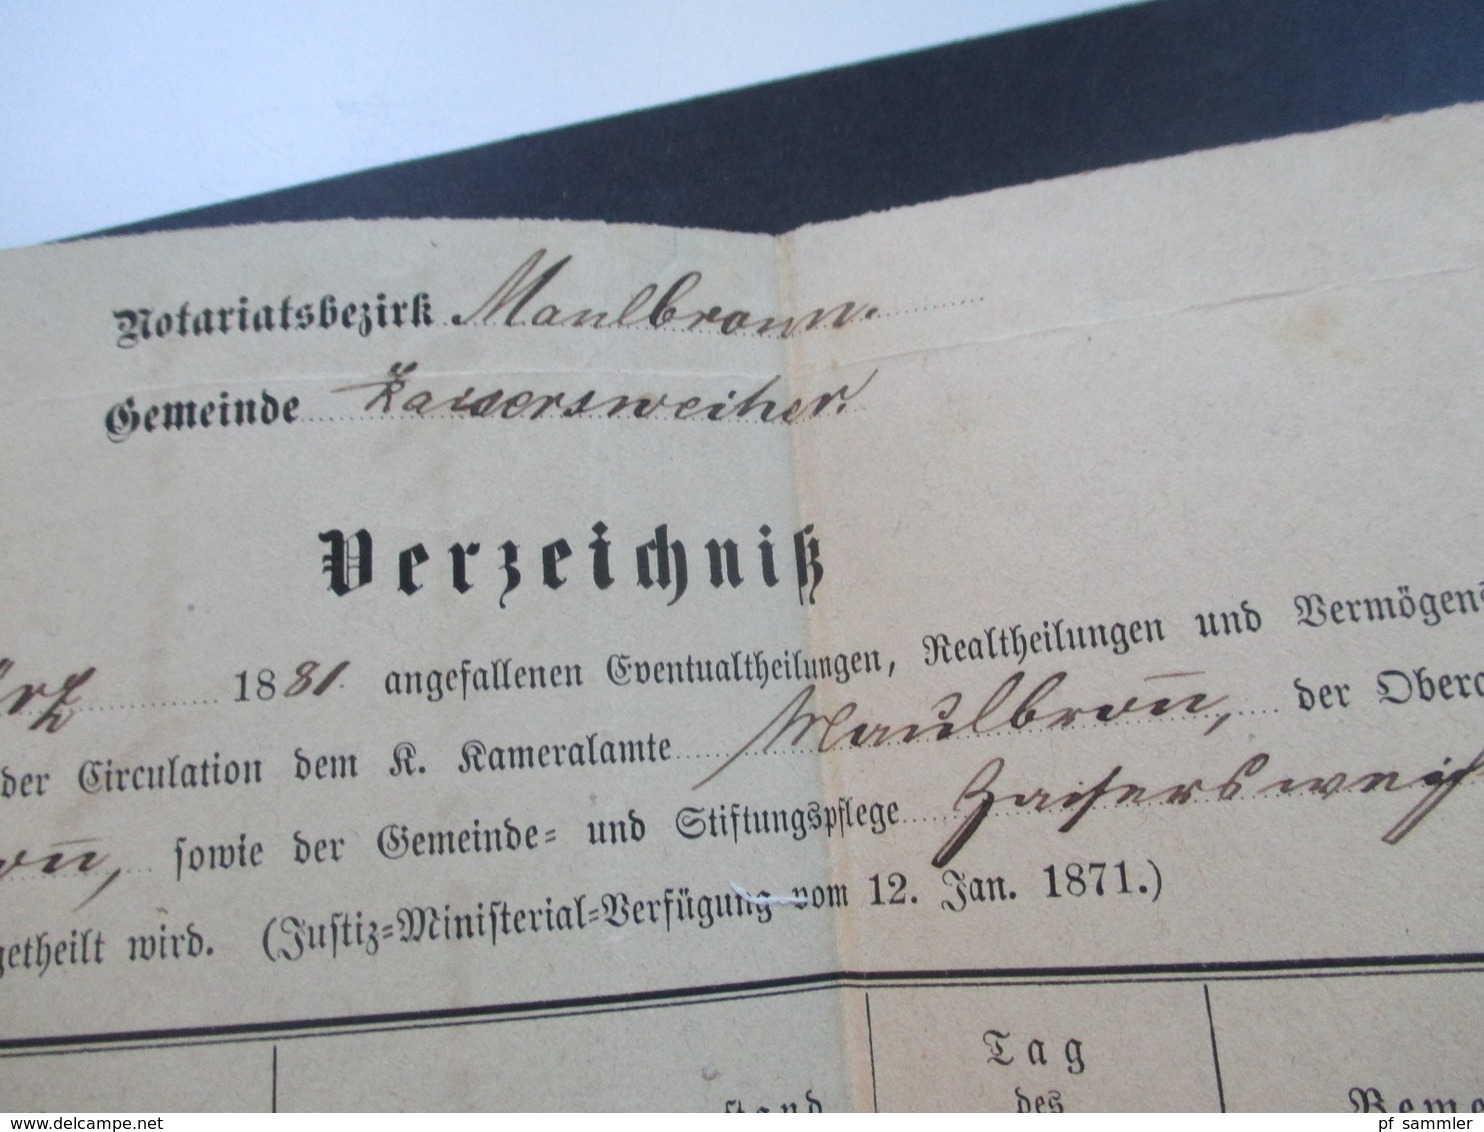 Notariatsbezirk Maulbronn.
Gemeinde Zaisersweiher.
Verzeichniß
ärz 1881. angefallenen Eventualtheilungen, Realtheilungen und Vermögens
der Circulation dem K. Kameralamte Maulbron̄, der Obera
ron̄, sowie der Gemeinde- und Stiftungspflege Zaisersweih
getheilt wird. (Justiz-Ministerial-Verfügung vom 12. Jan. 1871.)
Tag
stand des Beme
www.delcampe.net pf_sammler